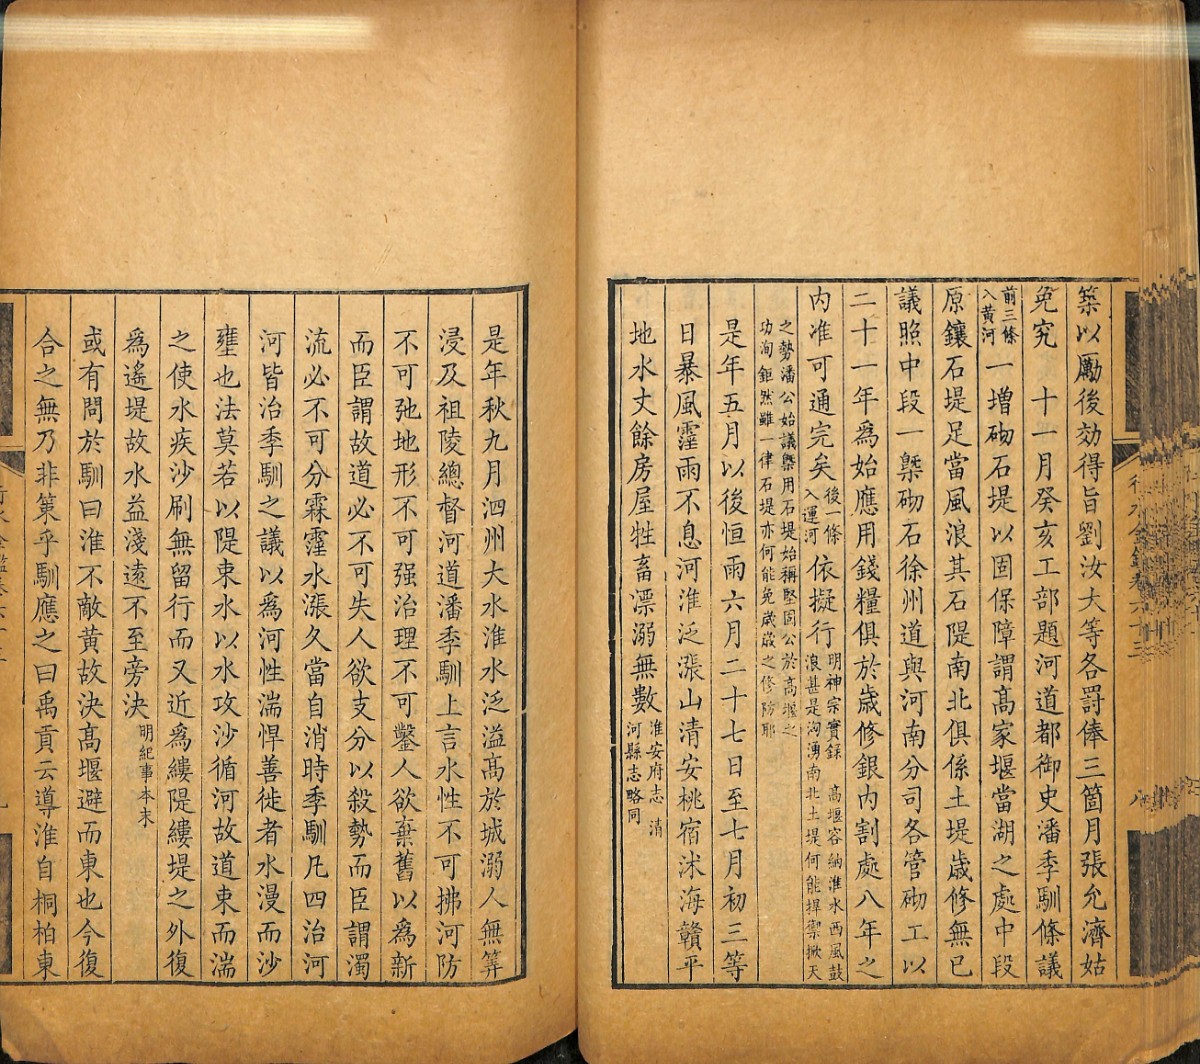 築以勵後効得旨劉汝大等各罰俸三箇月張允濟姑
免究　十一月癸亥工部題河道都御史潘季馴條議
前三條
入黄河
一增砌石堤以固保障謂髙家堰當湖之處中段
原鑲石堤足當風浪其石隄南北俱係土堤歲修無已
議照中段一槩砌石徐州道與河南分司各管砌工以
二十一年爲始應用錢糧俱於歲修銀内割處八年之
内准可通完矣
後一條
入運河
依擬行
明神宗實録　髙堰容納淮水西風鼓
浪甚是洶湧南北土堤何能捍禦掀天
之勢潘公始議槩用石堤始稱堅固公於髙堰之
功洵鉅然雖一律石堤亦何能免歲歲之修防耶
是年五月以後恒雨六月二十七日至七月初三等
日暴風霪雨不息河淮泛漲山清安桃宿沭海贛平
地水丈餘房屋牲畜漂溺無數
淮安府志　清
河縣志略同
行水金鑑卷六十三
八
是年秋九月泗州大水淮水泛溢髙於城溺人無筭
浸及祖陵總督河道潘季馴上言水性不可拂河防
不可弛地形不可强治理不可鑿人欲棄舊以爲新
而臣謂故道必不可失人欲支分以殺勢而臣謂濁
流必不可分霖霪水漲久當自消時季馴凡四治河
河皆治季馴之議以爲河性湍悍善徙者水漫而沙
壅也法莫若以隄束水以水攻沙循河故道束而湍
之使水疾沙刷無留行而又近爲縷隄縷堤之外復
爲遙堤故水益淺遠不至旁決
明紀事本末
或有問於馴曰淮不敵黄故決髙堰避而東也今復
合之無乃非策乎馴應之曰禹貢云導淮自桐柏東